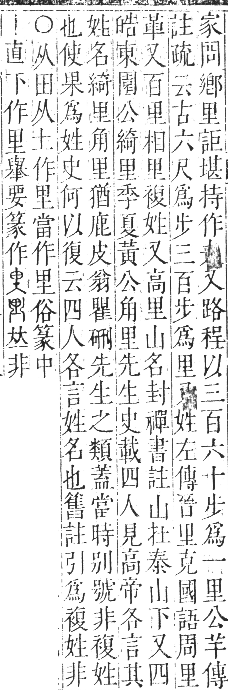 家問鄉里詎堪持作　又路程以三百六十步爲一里公羊傳
註疏云古六尺爲步三百步爲里　姓左傳晉里克國語周里
革又百里相里複姓又高里山名封禪書註山在泰山下又四
皓東園公綺里季夏黃公角里先生史載四人見高帝各言其
姓名綺里角里猶鹿皮翁瞿硎先生之類蓋當時別號非複姓
也使果爲姓史何以復云四人各言姓名也舊註引爲複姓非
○从田从土作里當作里俗篆中
丨直下作里舉要篆作
非